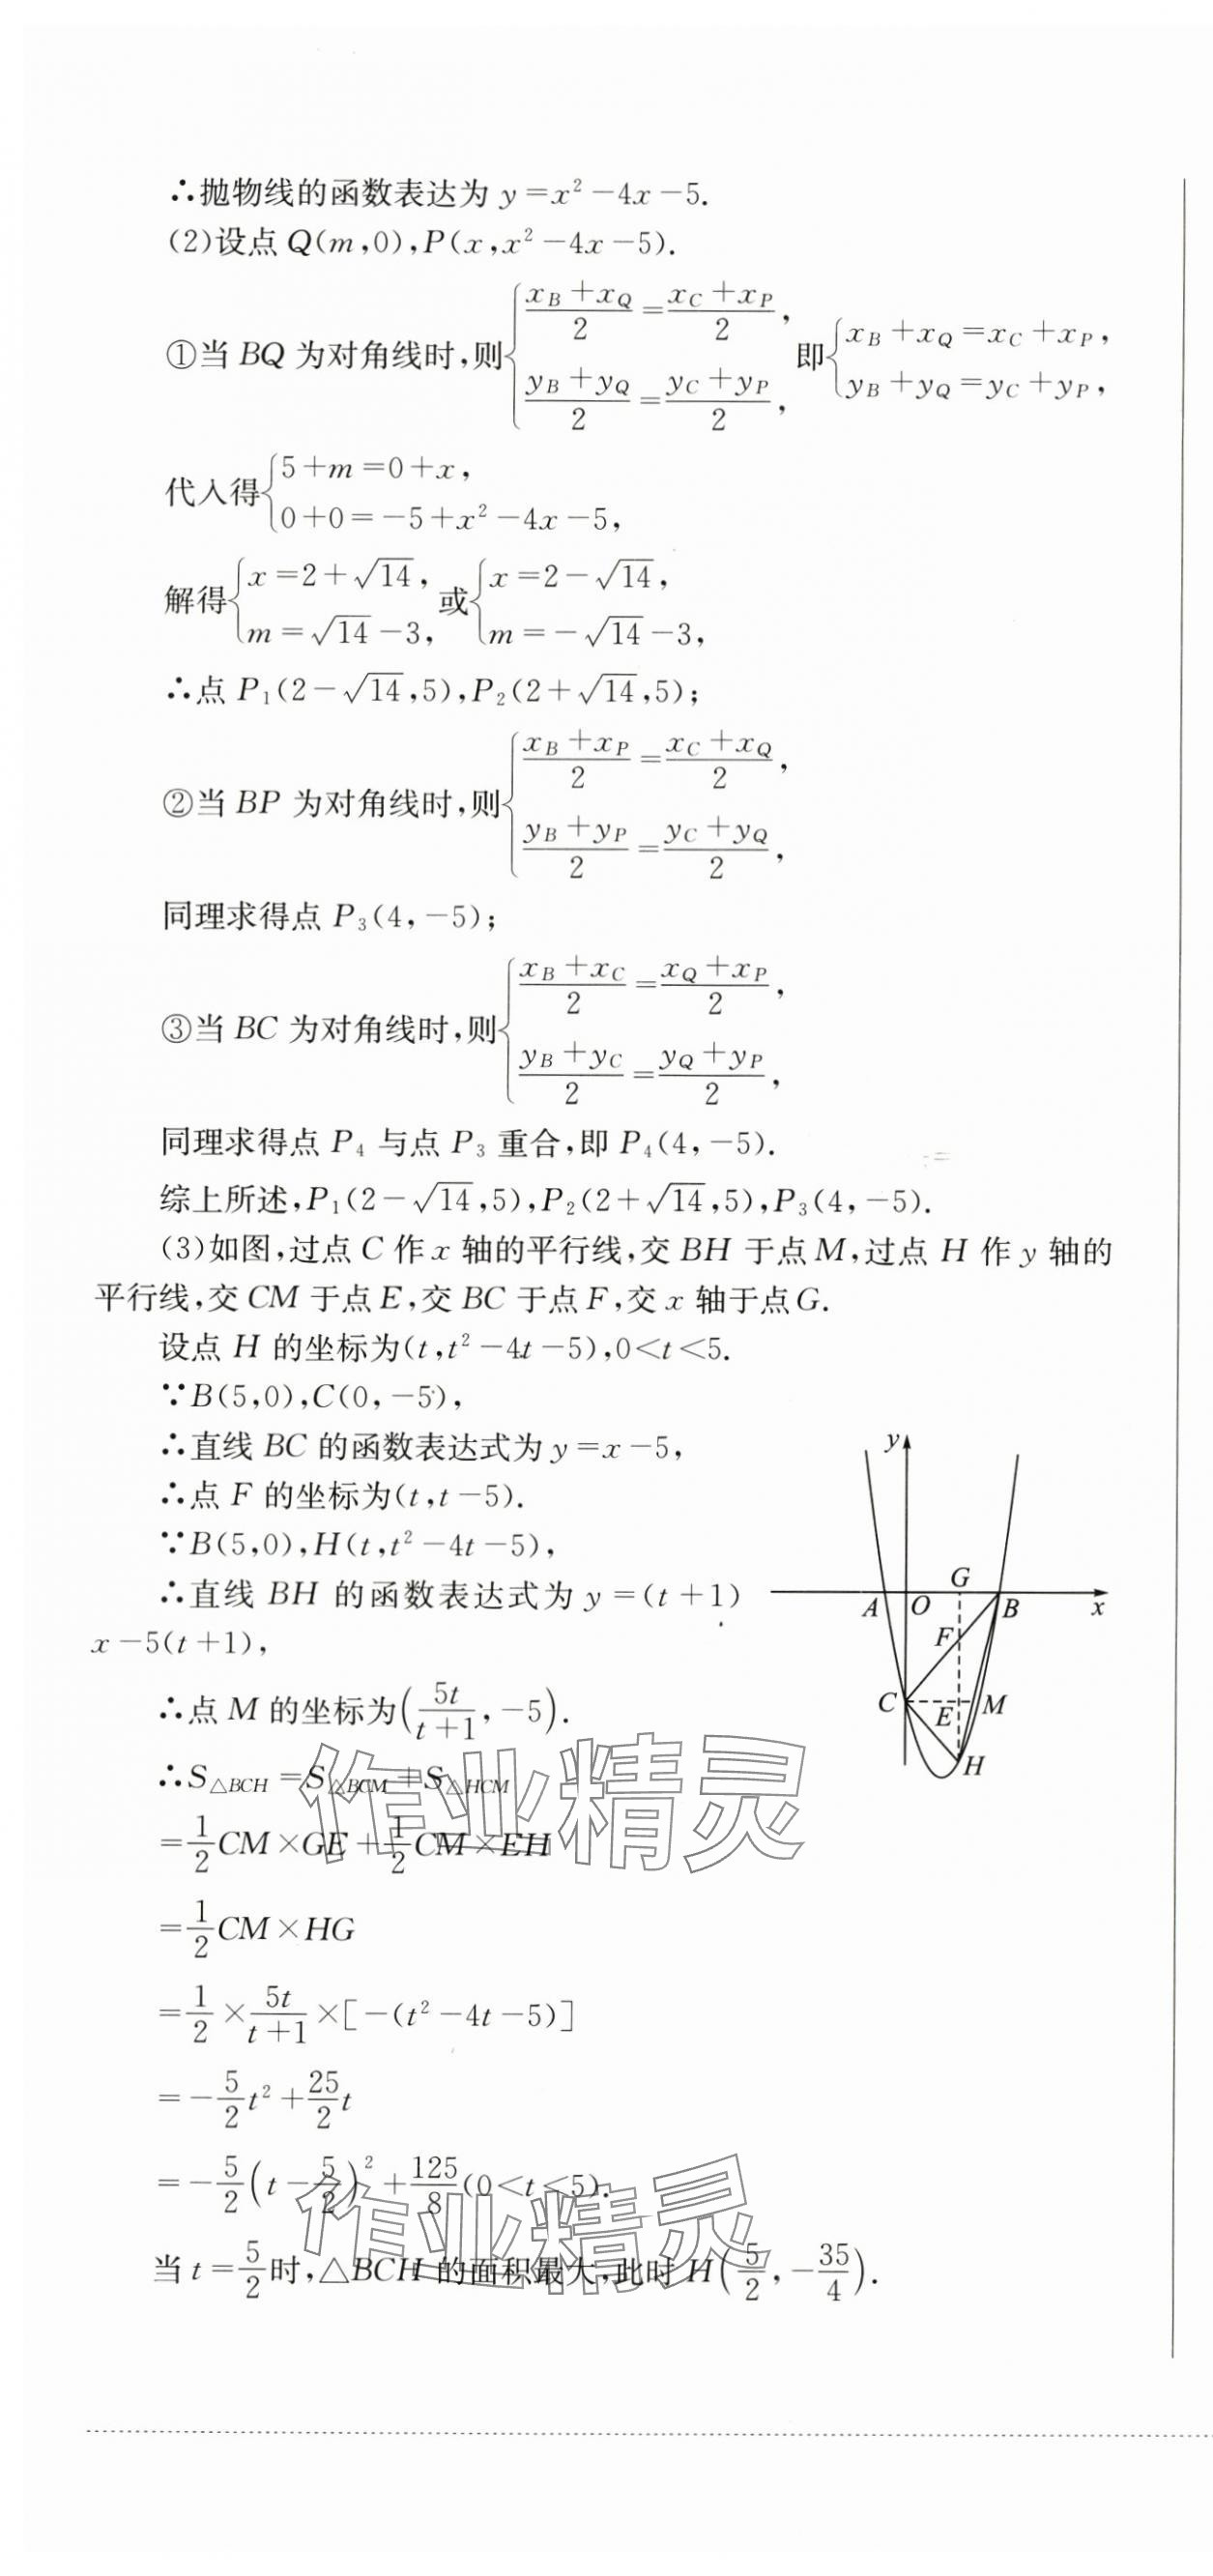 ∴抛物线的函数表达为 y=x²-4x-5.
(2)设点 Q(m,0),P(x,x²-4x-5).
①当 BQ 为对角线时,则{(x_B+x_Q)/2=(x_C+x_P)/2, (y_B+y_Q)/2=(y_C+y_P)/2, 即{x_B+x_Q=x_C+x_P, y_B+y_Q=y_C+y_P,
代入得{5+m=0+x, 0+0=-5+x²-4x-5,
解得{x=2+√14, m=√14-3, 或{x=2-√14, m=-√14-3,
∴点 P₁(2-√14,5),P₂(2+√14,5);
②当 BP 为对角线时,则{(x_B+x_P)/2=(x_C+x_Q)/2, (y_B+y_P)/2=(y_C+y_Q)/2,
同理求得点 P₃(4,-5);
③当 BC 为对角线时,则{(x_B+x_C)/2=(x_Q+x_P)/2, (y_B+y_C)/2=(y_Q+y_P)/2,
同理求得点 P₄ 与点 P₃ 重合,即 P₄(4,-5).
综上所述,P₁(2-√14,5),P₂(2+√14,5),P₃(4,-5).
(3)如图,过点 C 作 x 轴的平行线,交 BH 于点 M,过点 H 作 y 轴的
平行线,交 CM 于点 E,交 BC 于点 F,交 x 轴于点 G.
设点 H 的坐标为(t,t²-4t-5),0<t<5.
∵B(5,0),C(0,-5),
∴直线 BC 的函数表达式为 y=x-5,
∴点 F 的坐标为(t,t-5).
∵B(5,0),H(t,t²-4t-5),
∴直线 BH 的函数表达式为 y=(t+1)
x-5(t+1),
∴点 M 的坐标为(5t/(t+1),-5).
∴S△BCH=S△BCM+S△HCM
=1/2CM×GE+1/2CM×EH
=1/2CM×HG
=1/2×5t/(t+1)×[-(t²-4t-5)]
=-5/2t²+25/2t
=-5/2(t-5/2)²+125/8(0<t<5).
当 t=5/2时,△BCH 的面积最大,此时 H(5/2,-35/4).
y
G
A
O
B
x
F
C
E
M
H
作业精灵
作业精灵